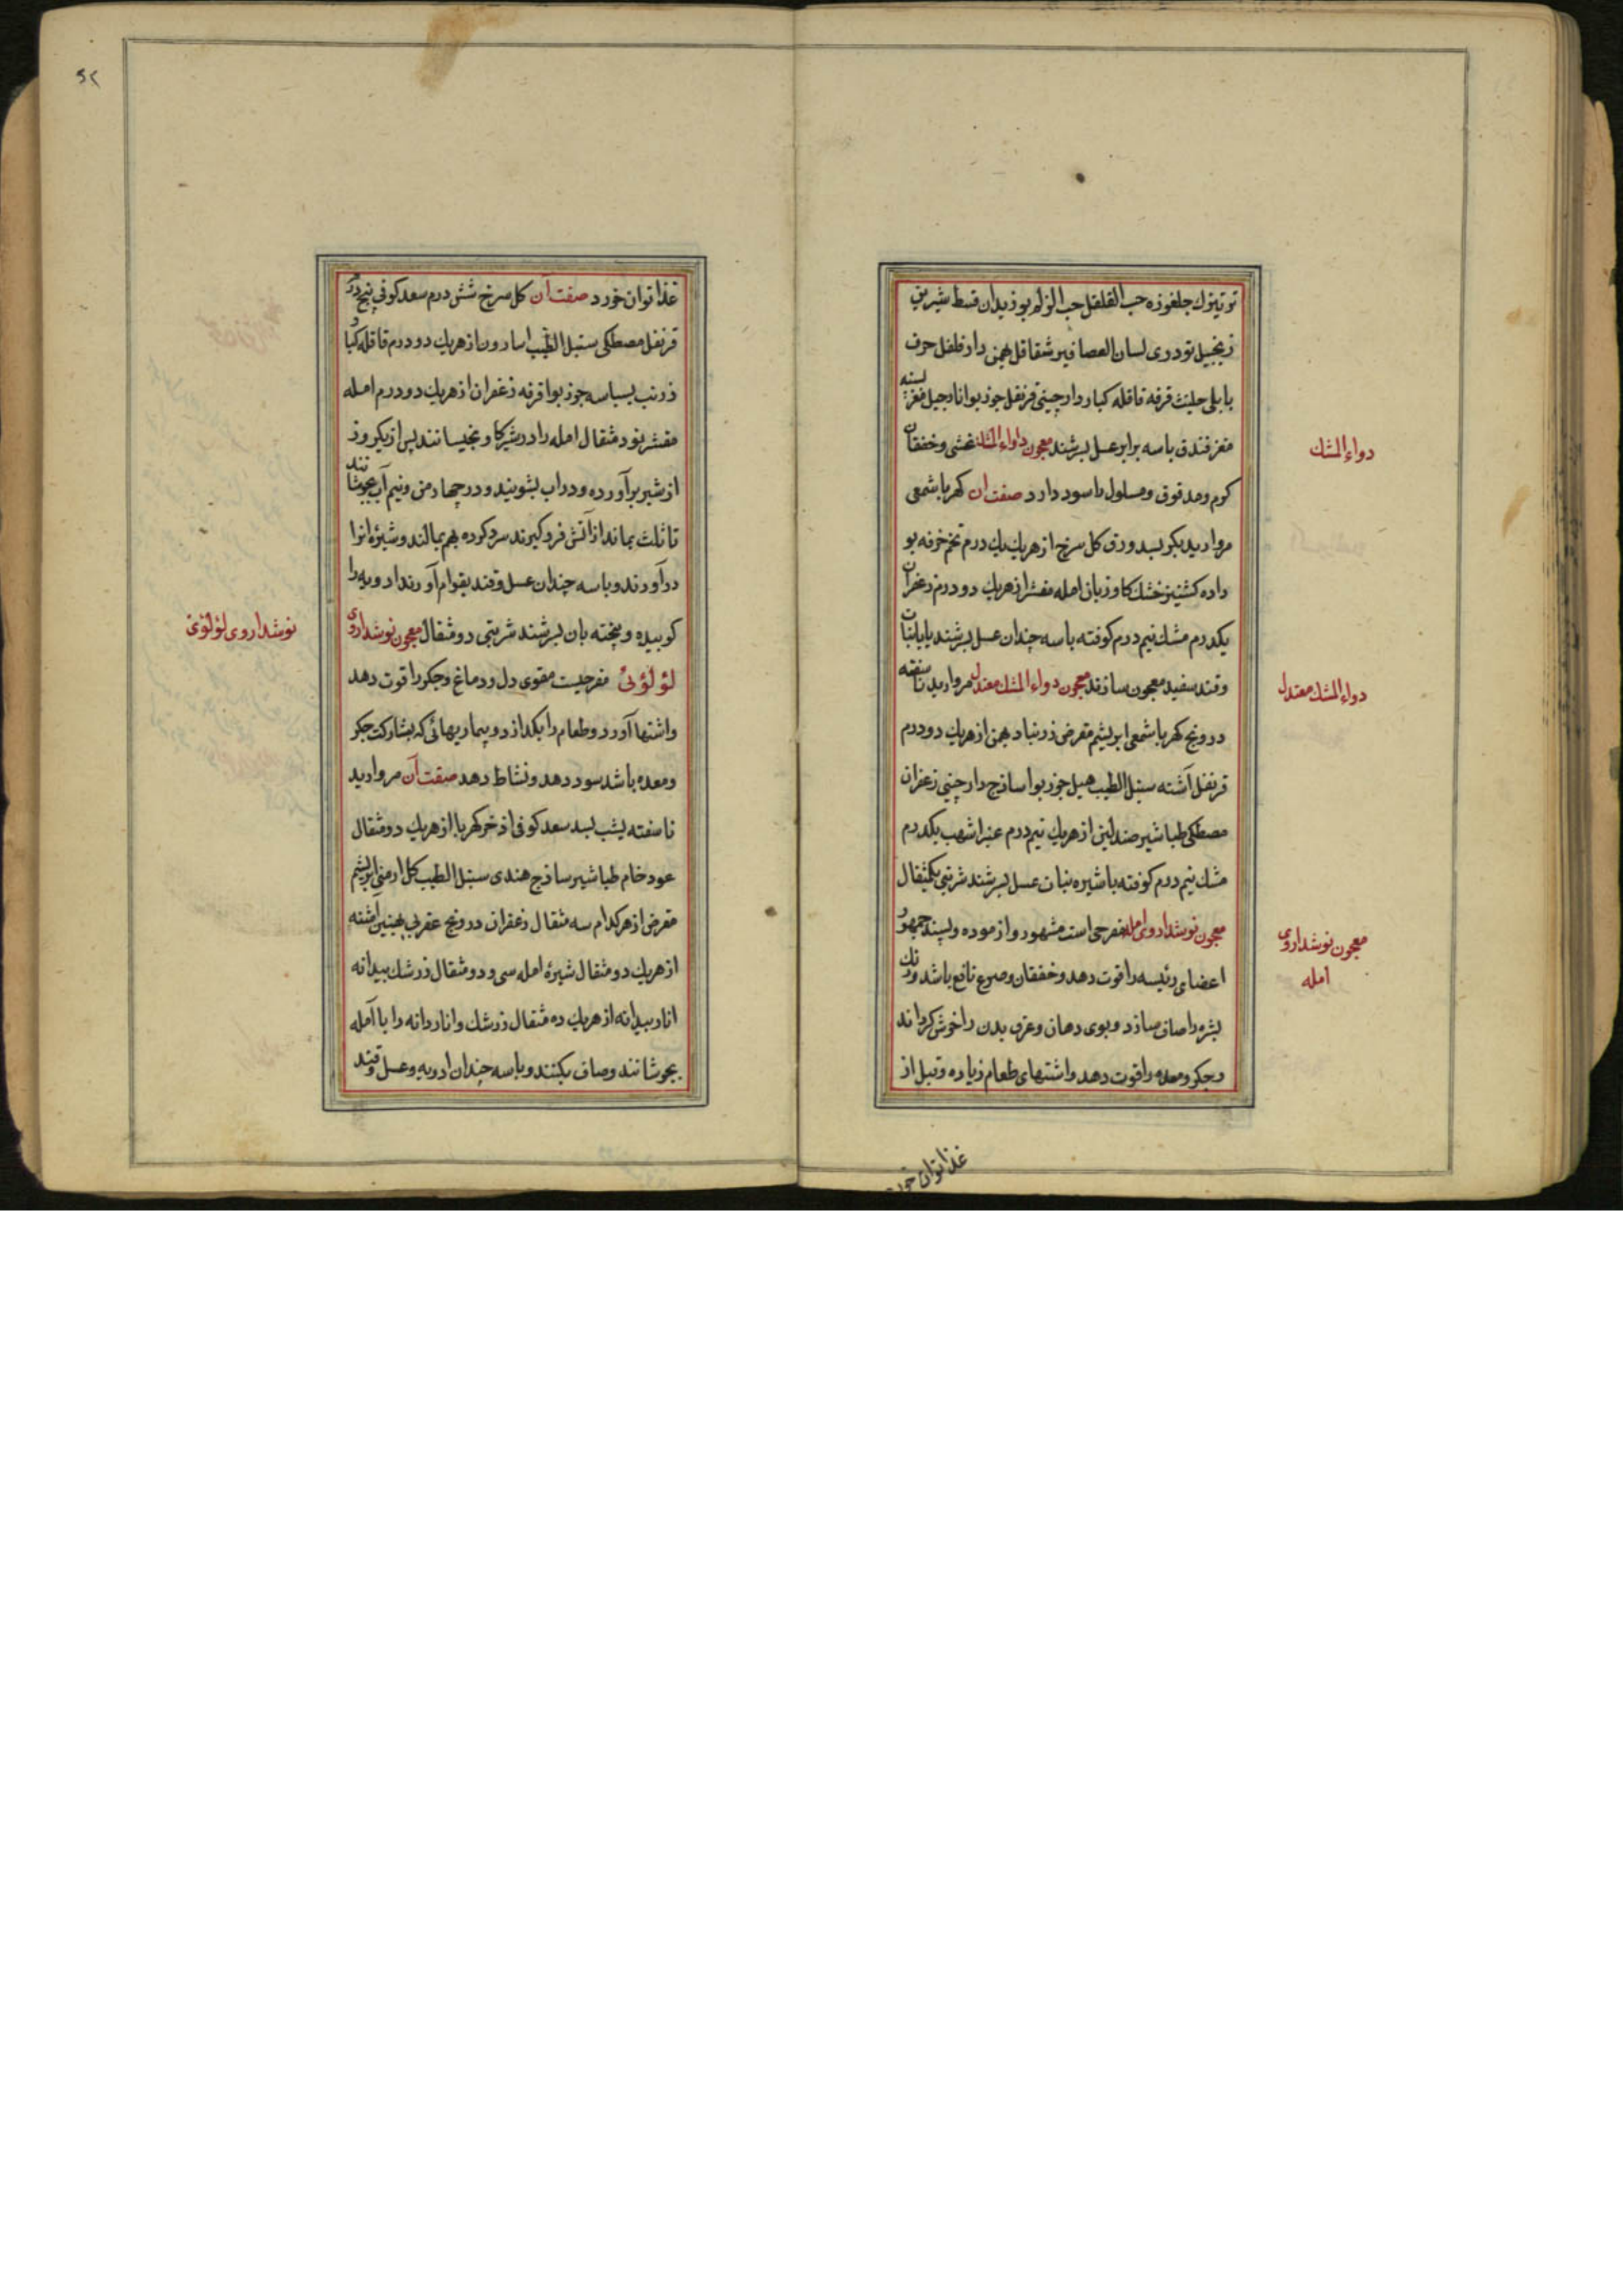 تو تیزک جلغوزه حب القلقل حب الزلم بوزیدان قسط شیرین
زنجبیل تودری لسان العصافیر شقاقل بهمن دارفلفل حرف
بابلی حلیث قرفه قاقله کبار دارچینی قرنفل جوزبوا نارجیل مغز پسته
مغز فندق باسه برابر عسل بسرشند معجون دواء المشک غشی و خفقان
کرم و مدقوق و مسلول را سود دارد صفت ان کهربا شمعی
مروارید بکر بسد ورق کل سرخ از هریک یک درم تخم خرفه بو
داده کشنیز خشک کاوزبان امله مقشر از هریک دو درم زعفران
یکدرم مشک نیم درم کوفته باسه چندان عسل بسرشند یا بانبات
وقند سفید معجون سازند معجون دواء المشک معتدل مروارید ناسفته
درونج کهربا شمعی ابریشم مقرض زرنباد بهمن از هریک دو درم
قرنفل آشنه سنبل الطیب هیل جوزبوا ساذج دارچینی زعفران
مصطکی طباشیر صندلین از هریک نیم درم عنبر اشهب یکدرم
مشک نیم درم کوفته باشیره نبات عسل بسرشند شربتی یکمثقال
معجون نوشداروی امله مفرحی است مشهور و ازموده و پسند جمهور
اعضای رئیسه را قوت دهد و خفقان و صرع نافع باشد و رنک
بشره را صاف سازد و بوی دهان و عرق بدن را خوش کرداند
و جکر و معده را قوت دهد و اشتهای طعام زیاده و قبل از
دواء المشک
دواء المشک معتدل
معجون نوشداروی
امله
غذا توان خورد
۵۲
غذا توان خورد صفت آن کل سرخ شش درم سعد کوفی پنج درم
قرنفل مصطکی سنبل الطیب اسارون از هریک دو درم قاقله کبار
زرنب بسباسه جوزبوا قرفه زعفران از هریک دو درم امله
مقشر نود مثقال امله را در شیر کاو بخیسانند پس از یکروز
از شیر برآورده و دراب بشویند و در چهار من و نیم آب بجوشانند
تا ثلث بماند از آتش فرو کیرند سرد کرده بهم بمالند و شیرهٔ انرا
درآورند و باسه چندان عسل و قند بقوام آورند ادویه را
کوبیده و بیخته بان بسرشند شربتی دو مثقال معجون نوشداروی
لؤلؤئی مفرحیست مقوی دل و دماغ و جکر را قوت دهد
و اشتها آورد و طعام را بکدازد و بیماریهائی که بمشارکت جکر
و معده باشد سود دهد و نشاط دهد صفت آن مروارید
ناسفته یشب بسد سعد کوفی اذخر کهربا از هریک دو مثقال
عود خام طباشیر ساذج هندی سنبل الطیب کل ارمنی ابریشم
مقرض از هر کدام سه مثقال زعفران درونج عقربی بهمنین اشنه
از هریک دو مثقال شیرهٔ امله سی و دو مثقال زرشک بیدانه
انار بیدانه از هریک ده مثقال زرشک و اناردانه را با آمله
بجوشانند و صاف بکنند و باسه چندان ادویه و عسل و قند
نوشداروی لؤلؤئی